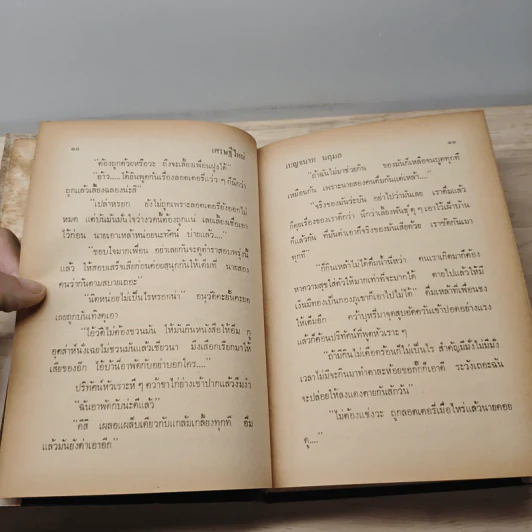 ๑๐ เศรษฐีใหม่
"ต้องถูกด้วยหรือวะ ถึงจะเลี้ยงเพื่อนฝูงได้"
"อ้าว.... ได้ยินพูดกันเรื่องลอตเตอรี่แว่ว ๆ ก็นึกว่า
ถูกแล้วเลี้ยงฉลองน่ะสิ"
"เปล่าหรอก ยังไม่ถูกเพราะลอตเตอรี่ยังออกไม่
หมด แต่บันมันมั่นใจว่างวดนี้ต้องถูกแน่ เลยเลี้ยงเชื่อเอา
ไว้ก่อน นายเอาเหล้าหน่อยนะทัศน์ บ่ายแล้ว...."
"ขอบใจมากเพื่อน อย่าเลยกันจะดูตำราสอบพรุ่งนี้
แล้ว ให้สอบเสร็จเสียก่อนค่อยสนุกกันให้เต็มที่ นายสอง
คนว่ากันตามสบายเถอะ"
"นิดหน่อยไม่เป็นไรหรอกน่า" อนุวัติคะยั้นคะยอ
เลยถูกบันเทิงดุเอา
"ไอ้วัติไม่ต้องชวนมัน ให้มันกินหนังสือให้อิ่ม กู
อุตส่าห์นั่งเฉยไม่ชวนมันแล้วเชียวนา มึงเสือกเรียกมาให้
เสียของอีก ไอ้บ้านี่อาพัดกับอย่าบอกใคร...."
ปริทัศน์หัวเราะหึ ๆ คว้าขาไก่ย่างเข้าปากแล้วงึมงำ
"ฉันอาพัดกับน่ะดีแล้ว"
"ดีสิ เผลอแผล็บเดียวกับแกล้มเกลี้ยงทุกที อิ่ม
แล้วมันยังด่าเอาอีก"
เบญจนาท นฤมล ๑๑
"ถ้าฉันไม่มาช่วยกิน ของมันก็เหลือจนบูดทุกที
เหมือนกัน เพราะนายสองคนดื่มกันแต่เหล้า...."
"จริงของมันว่ะบัน อย่าไปว่ามันเลย เราดื่มแล้ว
ก็คุยเรื่องของเราดีกว่า นึกว่าเลี้ยงพันธุ์ดุ ๆ เอาไว้เฝ้าบ้าน
ก็แล้วกัน ที่มันด่าเอาก็จริงของมันเสียด้วย เราซัดกันเมา
ทุกที"
"ก็กินเหล้าไม่ได้ดื่มน้ำนี่หว่า คนเราเกิดมาก็ต้อง
หาความสุขใส่ตัวให้มากเท่าที่จะมากได้ ตายไปแล้วให้มี
เงินมีทองเป็นกองภูเขาก็เอาไปไม่ได้" ดื่มเหล้าที่เพื่อนชง
ให้เต็มอึก คว้าบุหรี่มาจุดสูบอัดควันเข้าปอดอย่างแรง
แล้วก้อนปริทัศน์ที่พูดหัวเราะ ๆ
"ถ้ามีกินไม่เดือดร้อนก็ไม่เป็นไร สำคัญมีมั่งไม่มีมั่ง
เวลาไม่มีจะกินมาทำตาละห้อยบอกกี้กเอ้าดี ระวังเถอะฉัน
จะปล่อยให้ลงแดงตายกันสักวัน"
"ไม่ต้องแช่งวะ ถูกลอตเตอรี่เมื่อไหร่แล้วนายคอย
ดู...."